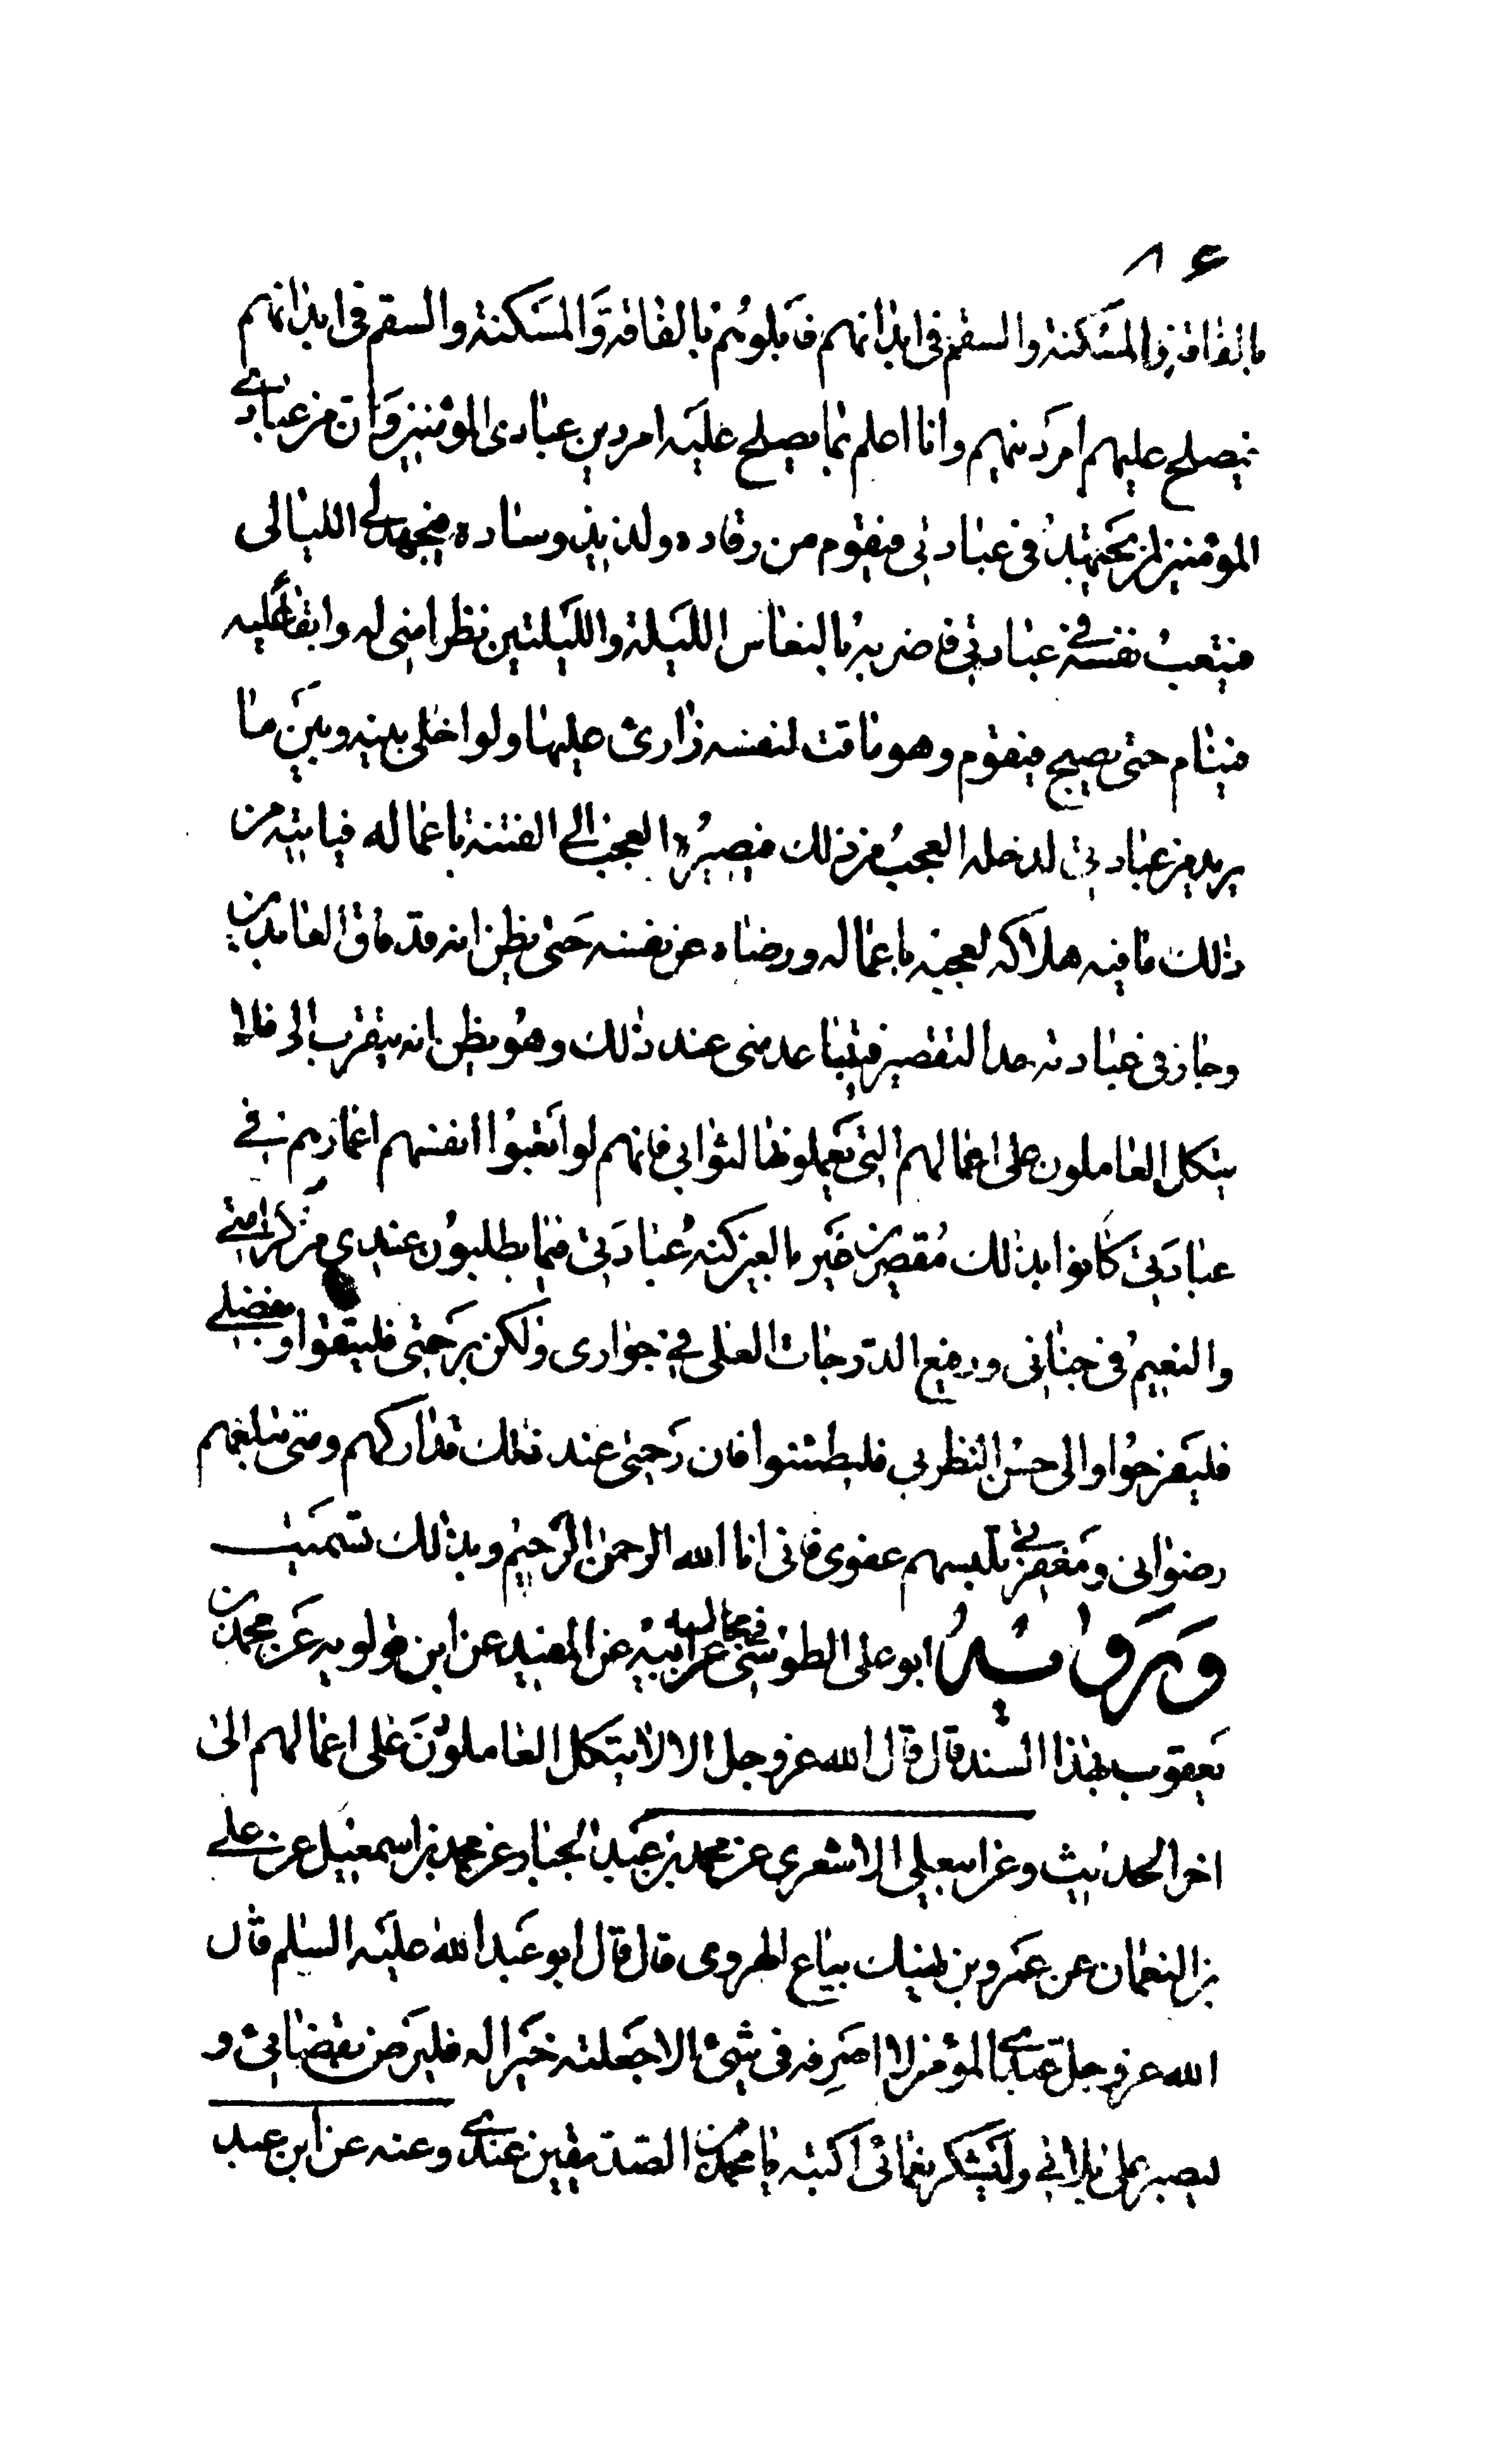 ٨٤
بالفاقة والمسكنة والسقم في ابدانهم فابلوهم بالفاقة والمسكنة والسقم في ابدانهم
فيصلح عليهم امر دينهم وانا اعلم بما يصلح عليه امر دين عبادي المؤمنين وان من عبادي
المؤمنين لمن يجتهد في عبادتي فيقوم من رقاده ولذيذ وساده فيجتهد لي الليالي
فيتعب نفسه في عبادتي فاضربه بالنعاس الليلة والليلتين نظرا مني له وابقاء عليه
فينام حتى يصبح فيقوم وهو ماقت لنفسه زارئ عليها ولو اخلي بينه وبين ما
يريد من عبادتي لدخله العجب من ذلك فيصيره العجب الى الفتنة باعماله فياتيه من
ذلك ما فيه هلاكه لعجبه باعماله ورضاه عن نفسه حتى يظن انه قد فاق العابدين
وجاز في عبادته حد التقصير فيتباعد مني عند ذلك وهو يظن انه يتقرب الي فلا
يتكل العاملون على اعمالهم التي يعملونها لثوابي فانهم لو اتعبوا انفسهم اعمارهم في
عبادتي كانوا بذلك مقصرين غير بالغين كنه عبادتي فيما يطلبون عندي من كرامتي
والنعيم في جناتي ورفيع الدرجات العلى في جواري ولكن برحمتي فليثقوا وبفضلي
فليفرحوا والى حسن الظن بي فليطمئنوا فان رحمتي عند ذلك تداركهم ومني يبلغهم
رضواني ومغفرتي تلبسهم عفوي فاني انا الله الرحمن الرحيم وبذلك تسميت
ورواه ابو علي الطوسي في مجالسه عن ابيه عن المفيد عن ابن قولويه عن محمد بن
يعقوب بهذا السند قال قال الله عز وجل الا لا يتكل العاملون على اعمالهم الى
اخر الحديث وعن ابي علي الاشعري عن محمد بن عبد الجبار عن محمد بن اسمعيل عن علي
بن النعمان عن عمرو بن نهيك بياع الهروي قال قال ابو عبد الله عليه السلم قال
الله عز وجل عبدي المؤمن لا اصرفه في شيئ الا جعلته خيرا له فليرض بقضائي و
ليصبر على بلائي وليشكر نعمائي اكتبه يا محمد من الصديقين عندي وعنه عن ابن عبد